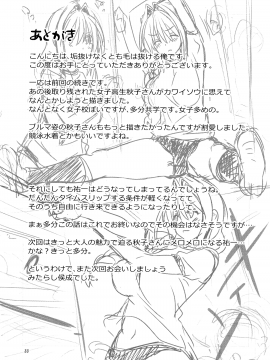 あとがき
こんにちは、垢抜けなくとも毛は抜ける俺です。
この度はお手にとっていただきありがとうございます。
一応は前回の続きです。
あの後取り残された女子高生秋子さんがカワイソウに思えて
なんとかしようと描きました。
なんとなく女子校ぽいですが、多分共学です。女子多めの。
ブルマ姿の秋子さんももっと描きたかったんですが割愛しました。
競泳水着とかもいいですよね。
それにしても祐一はどうなってしまってるんでしょうね。
だんだんタイムスリップする条件が軽くなってて
そのうち自由に行き来できるようになったりして。
まぁ多分この話はこれでお終いなのでその機会はなさそうですが…
次回はきっと大人の魅力で迫る秋子さんにメロメロになる祐一…
かな？きっと多分。
というわけで、また次回お会いしましょう
みたらし侯成でした。